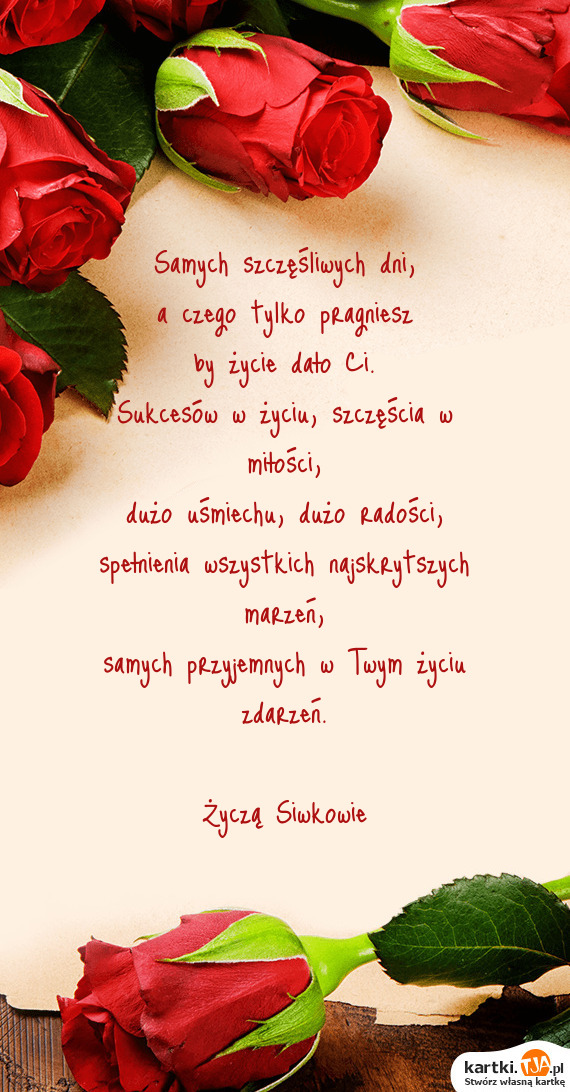 Samych szczęśliwych dni,
a czego tylko pragniesz
by życie dało Ci.
Sukcesów w życiu, szczęścia w
miłości,
dużo uśmiechu, dużo radości,
spełnienia wszystkich najskrytszych
marzeń,
samych przyjemnych w Twym życiu
zdarzeń.
Życzą Siwkowie
kartki.TJA.pl
Stwórz własną kartkę